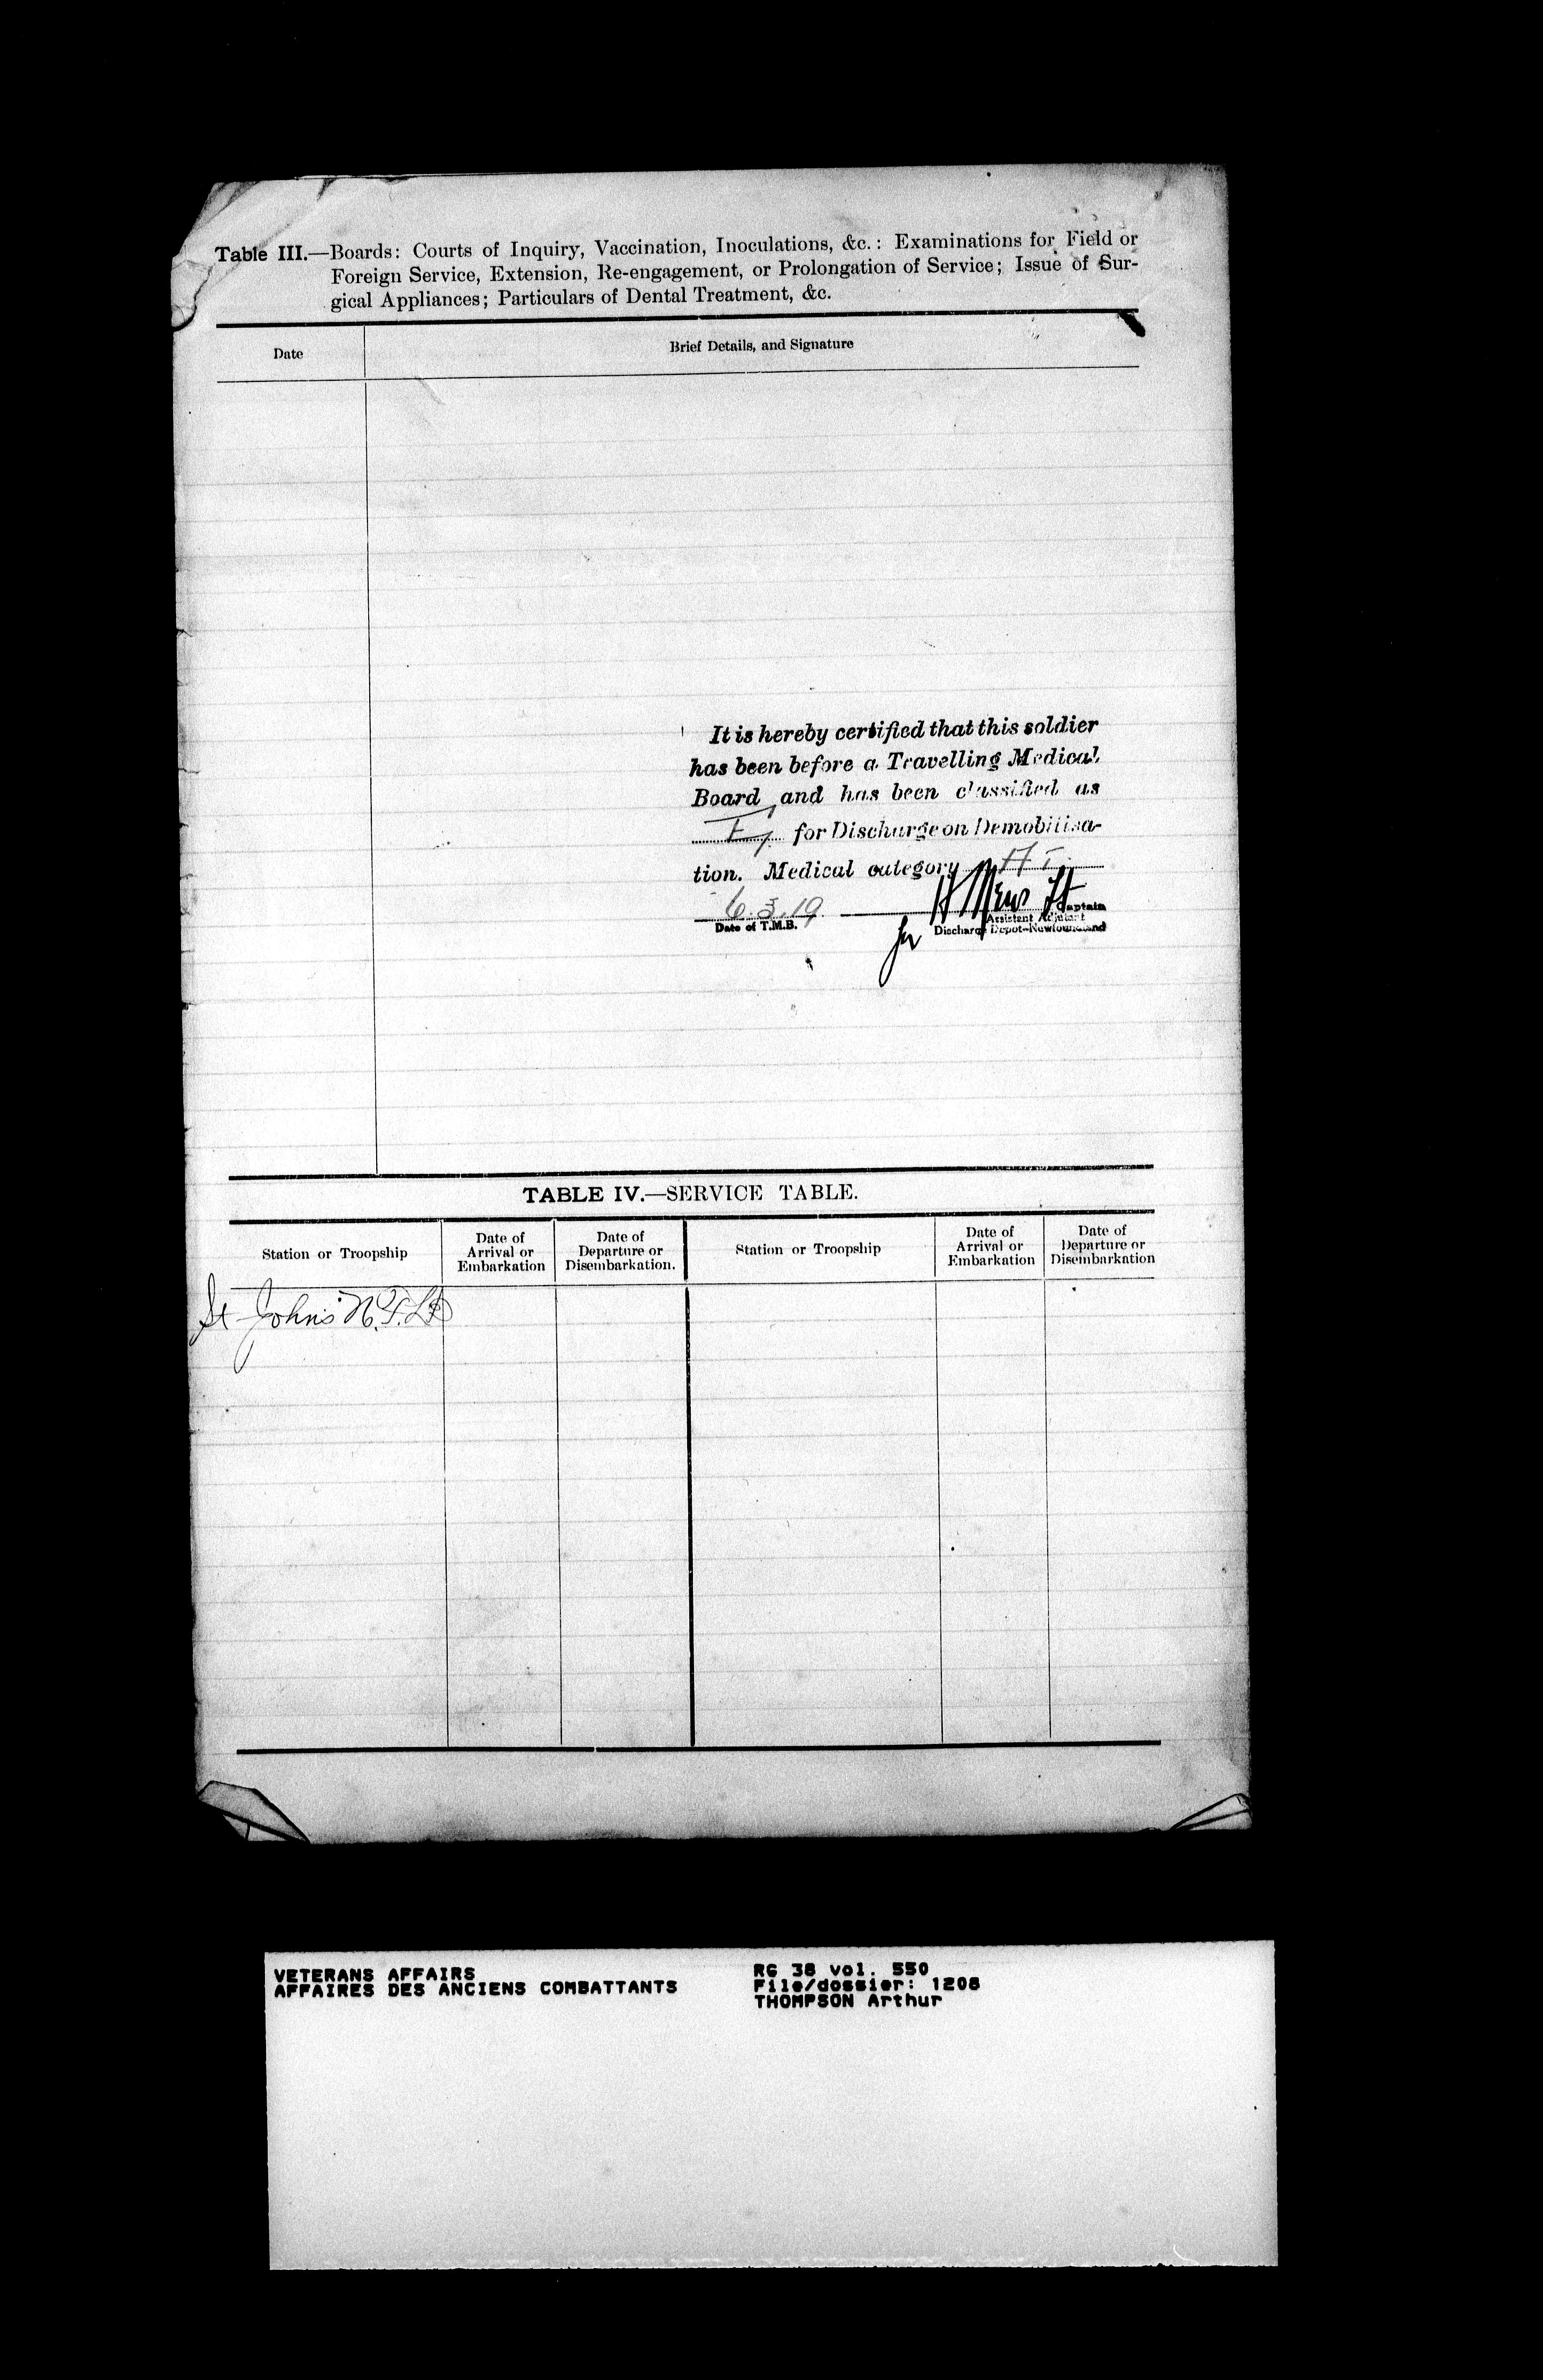 Table III.—Boards: Courts of Inquiry, Vaccination, Inoculations, &c.: Examinations for Field or
Foreign Service, Extension, Re-engagement, or Prolongation of Service; Issue of Sur-
gical Appliances; Particulars of Dental Treatment, &c.
Date
Brief Details, and Signature
It is hereby certified that this soldier
has been before a Travelling Medical
Board and has been classified as
for Discharge on Demobilisa-
tion. Medical category
6.3.19
Captain
Assistant Adjutant
Date of T.M.B.
for
Discharge Depot-Newfoundland
TABLE IV.—SERVICE TABLE.
Station or Troopship
Date of Arrival or Embarkation
Date of Departure or Disembarkation.
Station or Troopship
Date of Arrival or Embarkation
Date of Departure or Disembarkation
St John's N.F.Ld
VETERANS AFFAIRS
AFFAIRES DES ANCIENS COMBATTANTS
RG 38 vol. 550
File/dossier: 1208
THOMPSON Arthur